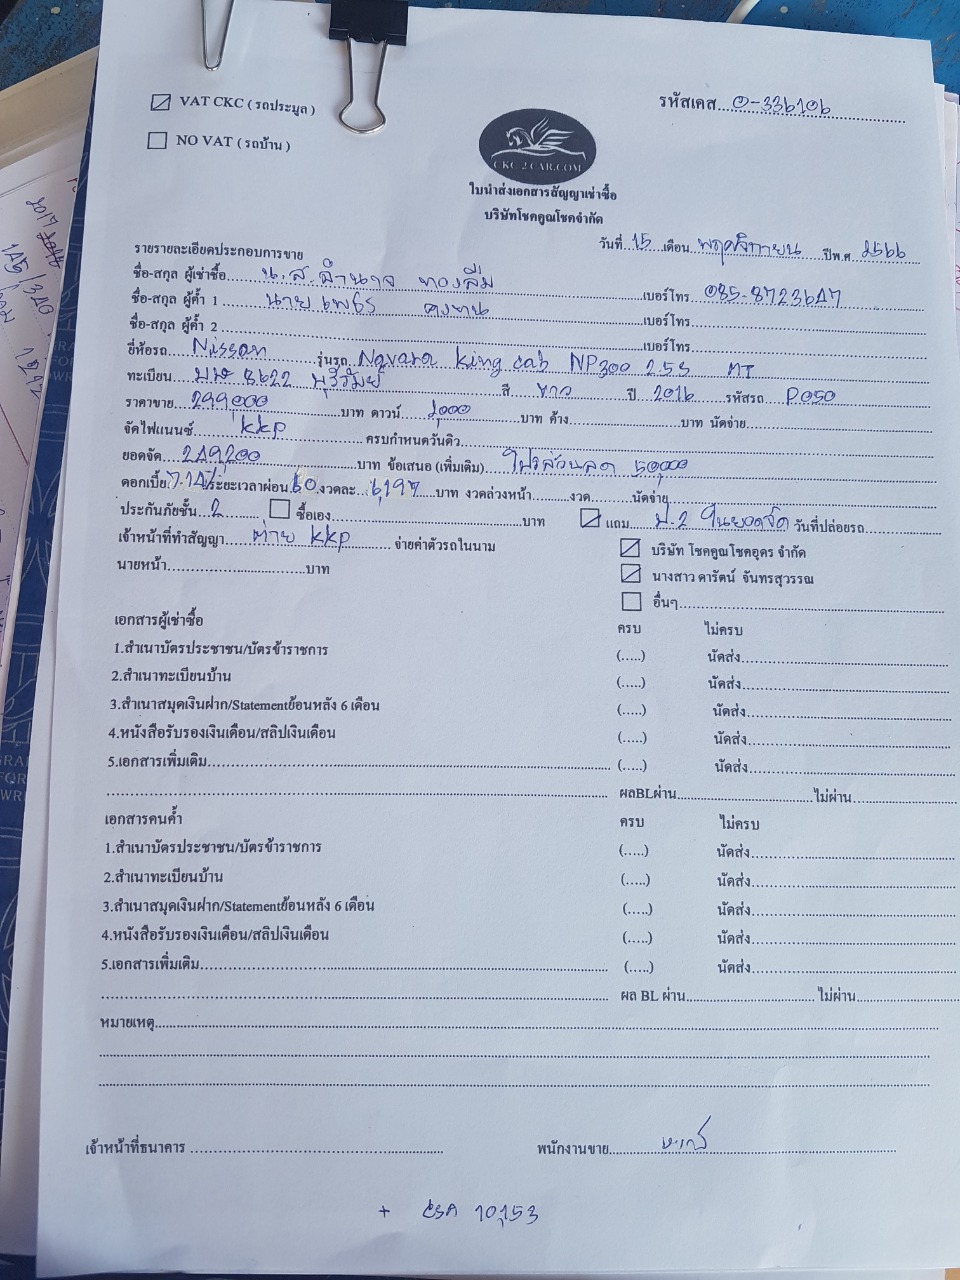 VAT CKC ( รถประมูล )
รหัสเคส...0-336106
NO VAT ( รถบ้าน )
CKC 2 CAR.COM
ใบนำส่งเอกสารสัญญาเช่าซื้อ
บริษัทโชคคูณโชคจำกัด
วันที่ 15 เดือน พฤศจิกายน ปีพ.ศ. 2566
รายรายละเอียดประกอบการขาย
ชื่อ-สกุล ผู้เช่าซื้อ น.ส.อำนาจ ทองลิ่ม เบอร์โทร 085-8723647
ชื่อ-สกุล ผู้ค้ำ 1 นาย เพชร คงทน เบอร์โทร
ชื่อ-สกุล ผู้ค้ำ 2 เบอร์โทร
ยี่ห้อรถ Nissan รุ่นรถ Navara King cab NP300 2.5S MT
ทะเบียน 8622 บุรีรัมย์ สี ขาว ปี 2016 รหัสรถ P050
ราคาขาย 299,000 บาท ดาวน์ 1,000 บาท ค้าง บาท นัดจ่าย
จัดไฟแนนซ์ kkp ครบกำหนดวันดิว
ยอดจัด 249,200 บาท ข้อเสนอ (เพิ่มเติม) โปรส่วนลด 50,000
ดอกเบี้ย 7.14% ระยะเวลาผ่อน 60 งวดละ 6,197 บาท งวดล่วงหน้า งวด นัดจ่าย
ประกันภัยชั้น 2 ซื้อเอง บาท แถม ป.2 ในยอดจัด วันที่ปล่อยรถ
เจ้าหน้าที่ทำสัญญา ต่าย kkp จ่ายค่าตัวรถในนาม
บริษัท โชคคูณโชคอุดร จำกัด
นายหน้า บาท
นางสาว ดารัตน์ จันทรสุวรรณ
อื่นๆ
เอกสารผู้เช่าซื้อ ครบ ไม่ครบ
1.สำเนาบัตรประชาชน/บัตรข้าราชการ (.....) นัดส่ง
2.สำเนาทะเบียนบ้าน (.....) นัดส่ง
3.สำเนาสมุดเงินฝาก/Statementย้อนหลัง 6 เดือน (.....) นัดส่ง
4.หนังสือรับรองเงินเดือน/สลิปเงินเดือน (.....) นัดส่ง
5.เอกสารเพิ่มเติม (.....) นัดส่ง
ผลBLผ่าน ไม่ผ่าน
เอกสารคนค้ำ ครบ ไม่ครบ
1.สำเนาบัตรประชาชน/บัตรข้าราชการ (.....) นัดส่ง
2.สำเนาทะเบียนบ้าน (.....) นัดส่ง
3.สำเนาสมุดเงินฝาก/Statementย้อนหลัง 6 เดือน (.....) นัดส่ง
4.หนังสือรับรองเงินเดือน/สลิปเงินเดือน (.....) นัดส่ง
5.เอกสารเพิ่มเติม (.....) นัดส่ง
ผล BL ผ่าน ไม่ผ่าน
หมายเหตุ
เจ้าหน้าที่ธนาคาร พนักงานขาย
+ 10,153